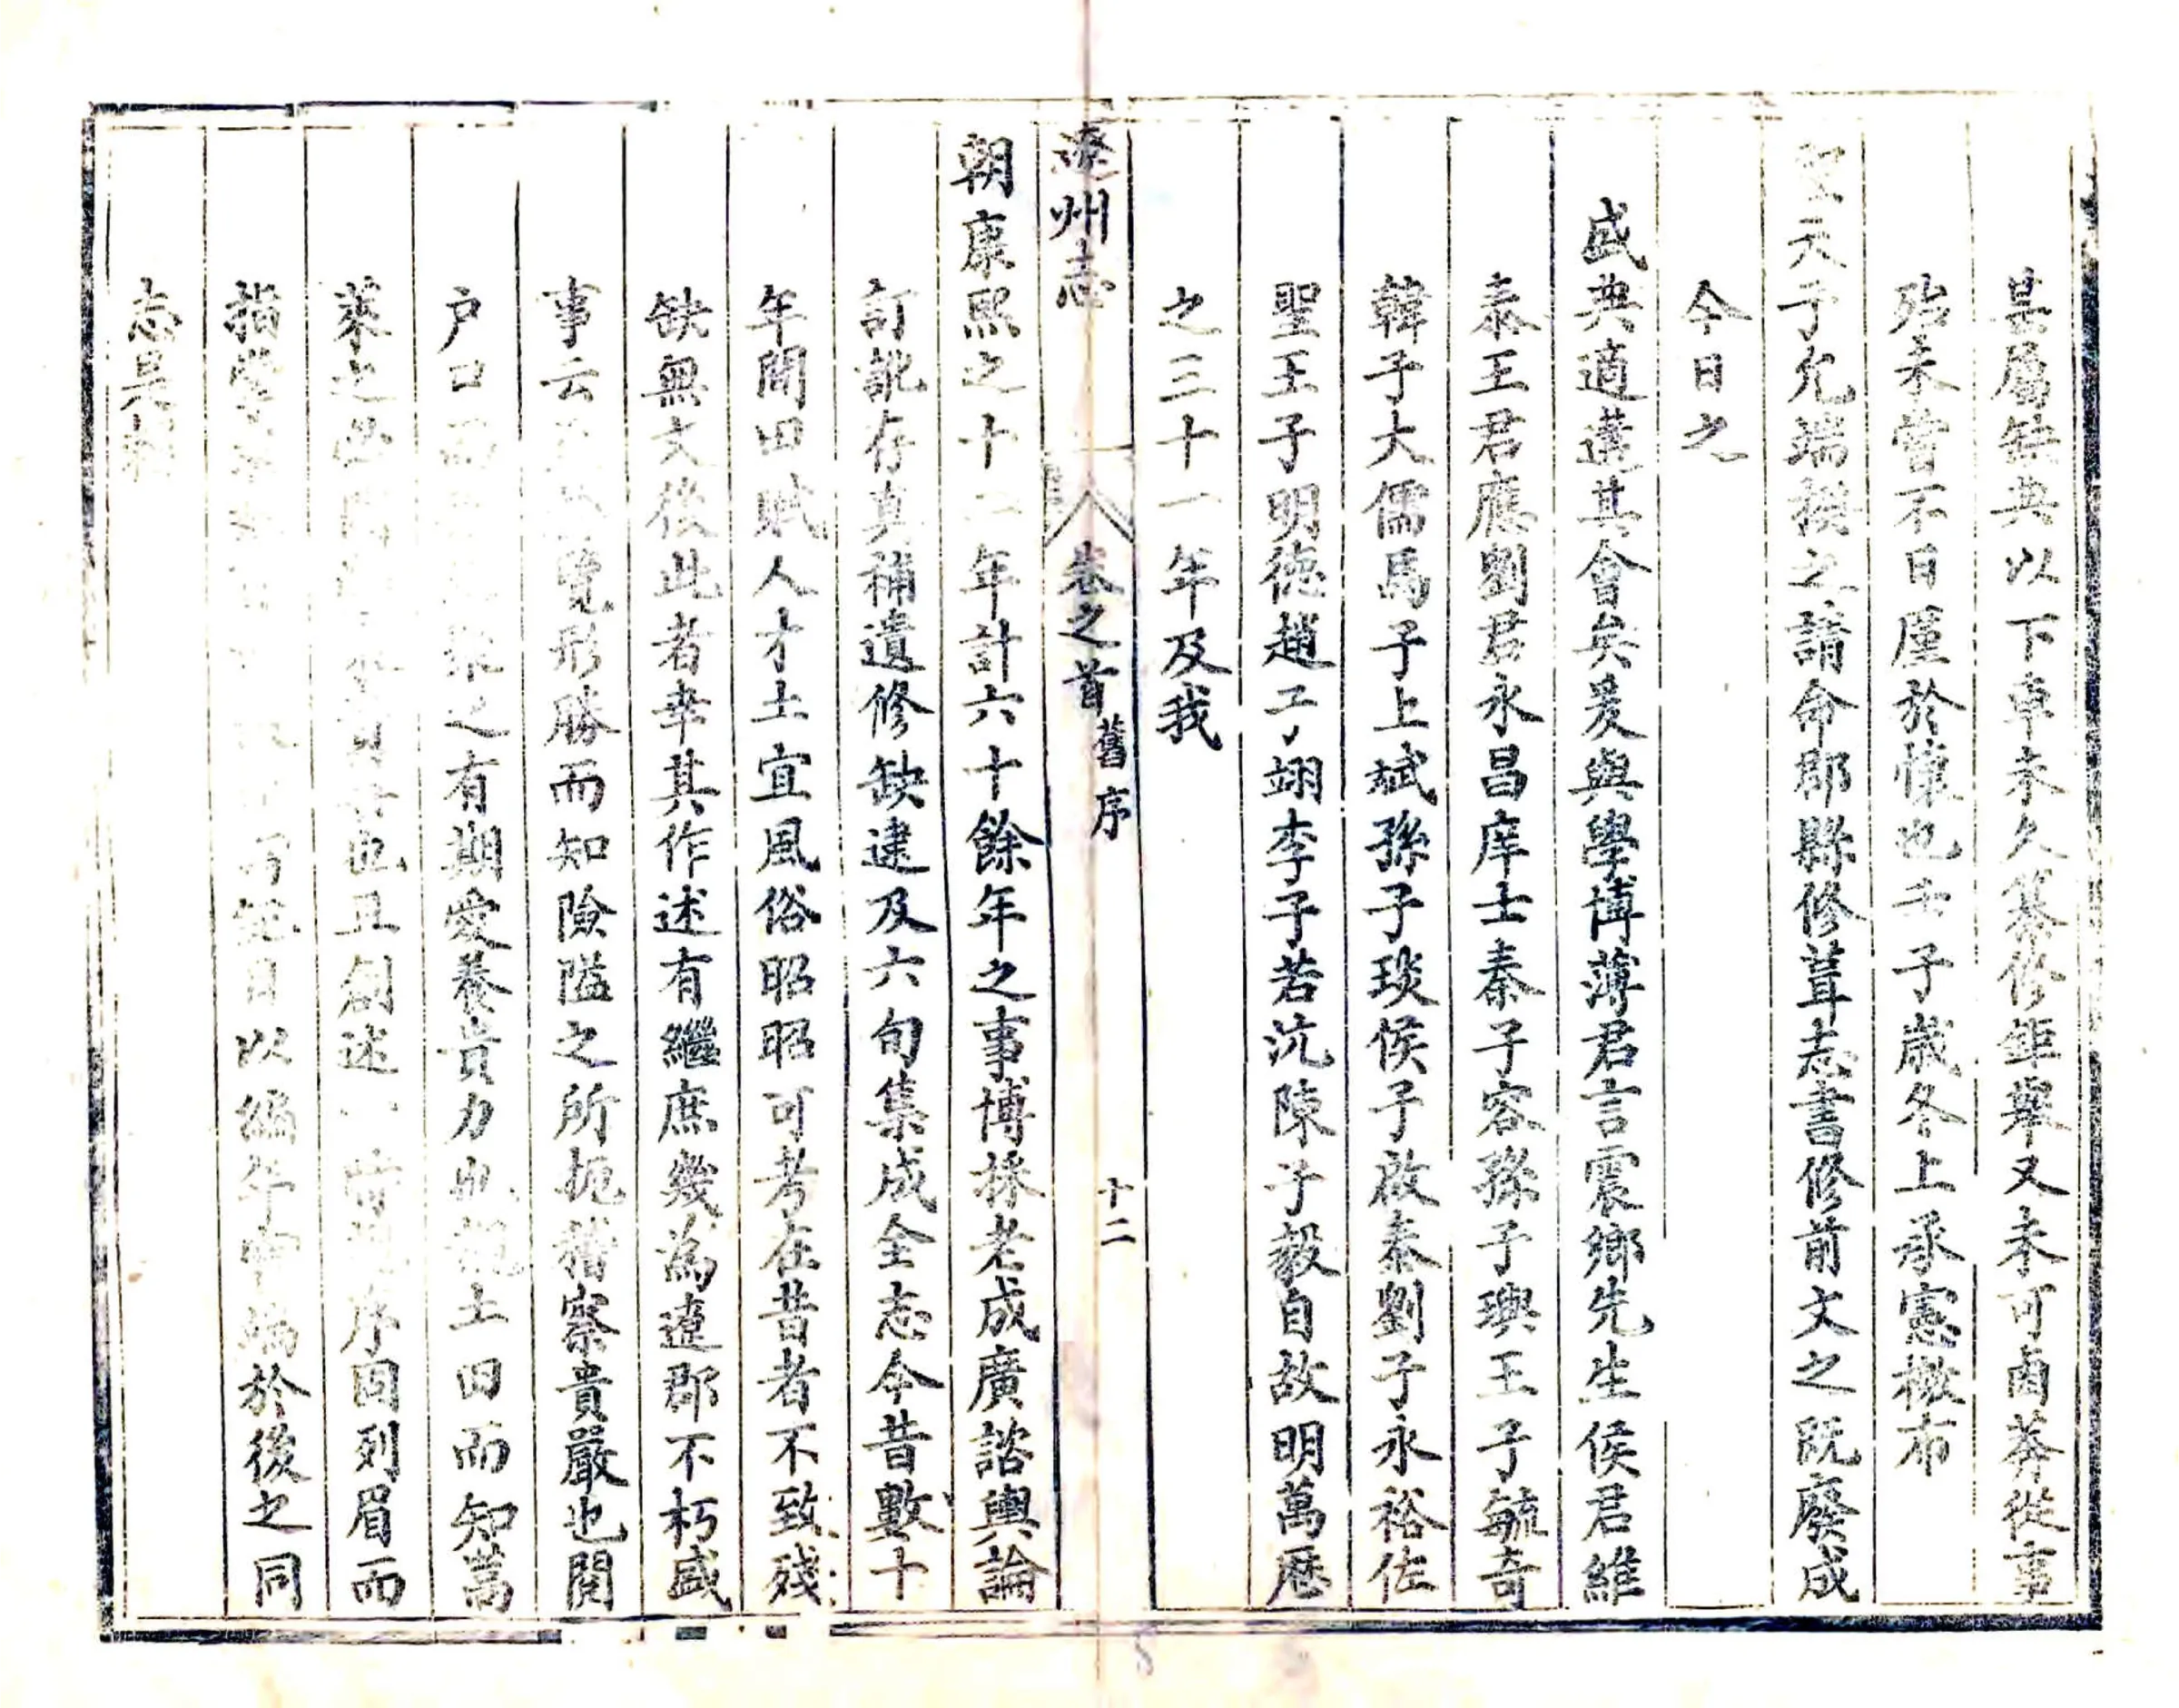 具屬缺典以下車未久纂修鉅舉又未可鹵莽從事
殆未嘗不日廑於懷也壬子歲冬上承憲檄布
聖天子允端揆之請命郡縣修葺志書修前文之既廢成
今日之
盛典適遘其會矣爰與學博薄君言震鄉先生侯君維
泰王君應劉君永昌庠士秦子容孫子璵王子毓奇
韓子大儒馬子上斌孫子琰侯子啟泰劉子永裕佐
聖王子明德趙子翊李子若沆陳子毅自故明萬曆
之三十一年及我
遼州志
卷之首
舊序
十二
朝康熙之十二年計六十餘年之事博採老成廣諮輿論
訂訛存真補遺修缺逮及六旬集成全志今昔數十
年間田賦人才土宜風俗昭昭可考在昔者不致殘
缺無文後此者幸其作述有繼庶幾為遼郡不朽盛
事云覽形勝而知險隘之所扼稽察貴嚴也閱
戶口而聚之有期愛養貴力也土田而知蒿
萊之也且創述序回列眉而
指掌目以編年於後之同
志